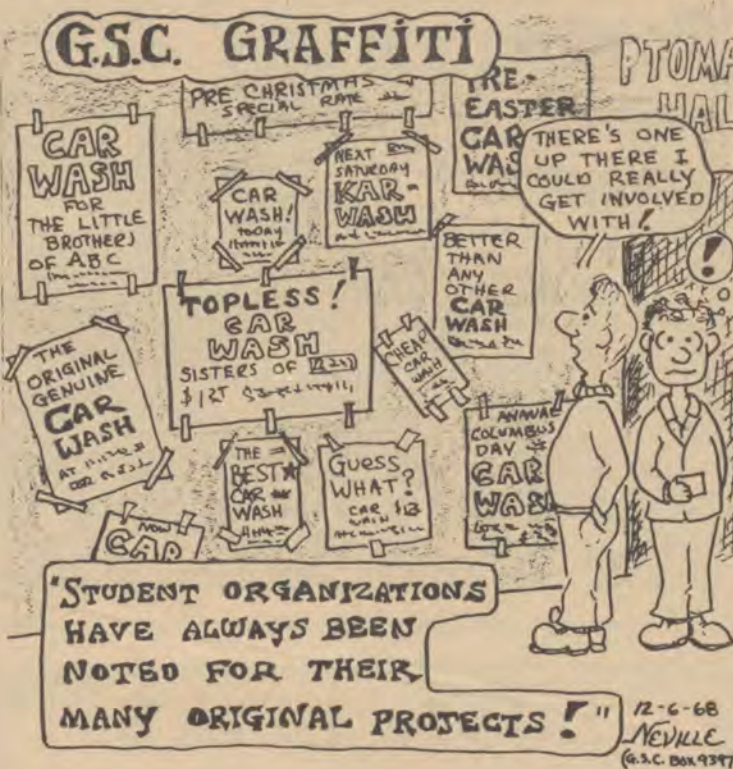 G.S.C. GRAFFITI
PTOMA
HAL
PRE CHRISTMAS
SPECIAL RATE
PRE-
EASTER
CAR
WAS
THERE'S ONE
UP THERE I
COULD REALLY
GET INVOLVED
WITH!
!
CAR
WASH
FOR
THE LITTLE
BROTHERS
OF ABC
CAR
WASH!
TODAY
NEXT
SATURDAY
KAR-
WASH
BETTER
THAN
ANY
OTHER
CAR
WASH
TOPLESS!
CAR
WASH
SISTERS OF
CHEAP
CAR
WASH
THE
ORIGINAL
GENUINE
CAR
WASH
AT
THE
BEST
CAR
WASH
GUESS
WHAT?
CAR
WASH
ANNUAL
COLUMBUS
DAY
CAR
WASH
NOW
CAR
"STUDENT ORGANIZATIONS
HAVE ALWAYS BEEN
NOTED FOR THEIR
MANY ORIGINAL PROJECTS!"
12-6-68
NEVILLE
(G.S.C. BOX 9397